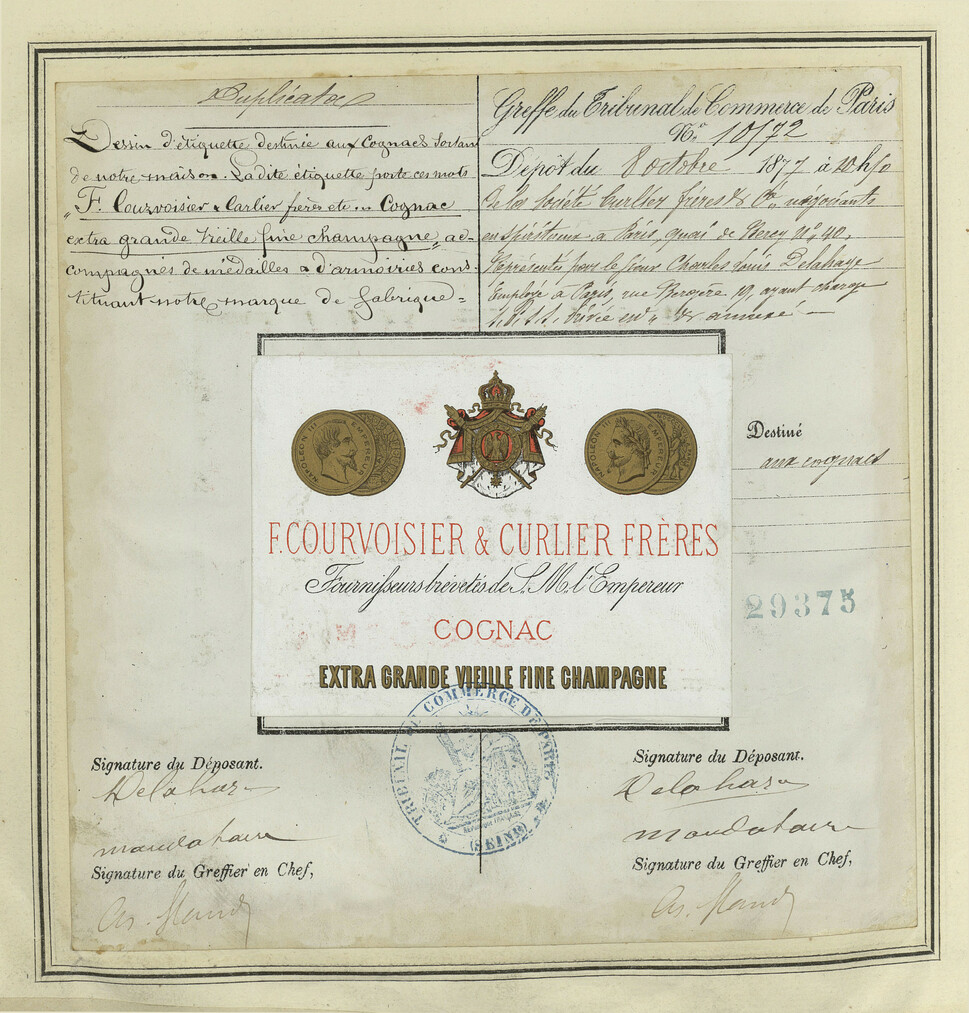 Duplicata
Dessin d'étiquette destinée aux Cognacs Sortant
de notre maison. Ladite étiquette porte ces mots
"F. Courvoisier & Carlier frères etc... Cognac
extra grande vieille fine champagne" ac-
compagnés de médailles & d'armoiries cons-
tituant notre marque de fabrique =
Greffe du Tribunal de Commerce de Paris
No. 10572
Dépôt du 8 octobre 1877 à
de la société Curlier frères & Cie, négociants
en spiritueux à Paris, quai de Bercy No. 40.
Représentés par le sieur Charles Louis Delahaye
Employé à Paris, rue Bergère 19, ayant charge
NAPOLEON III EMPEREUR
NAPOLEON III EMPEREUR
F. COURVOISIER & CURLIER FRÈRES
Fournisseurs brévetés de S. M. l'Empereur
COGNAC
EXTRA GRANDE VIEILLE FINE CHAMPAGNE
Destiné
aux cognacs
29375
TRIBUNAL DE COMMERCE DE PARIS
(SEINE)
Signature du Déposant.
Delahaye
mandataire
Signature du Greffier en Chef,
Signature du Déposant.
Delahaye
mandataire
Signature du Greffier en Chef,